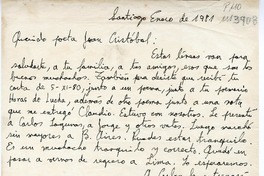 Santiago Enero de 1981
Querido poeta Juan Cristóbal:
Estas líneas van para
saludarte, a tu familia, a tus amigos, esos que son los
buenos muchachos. También para decirte que recibí tu
carta de 5-XI-80, junto a un poema, junto a tu poemario
Horas de Lucha, además de otro poema junto a una nota
que me entregó Claudio. Estuvo con nosotros. Le presenté
a Carlos, a Jorge y otros vates. Luego marchó
sin mayores a B. Aires. Puedes estar tranquilo.
Es un muchacho tranquilo y correcto. Quedó en
pasar a vernos de regreso a Lima. Lo esperaremos.